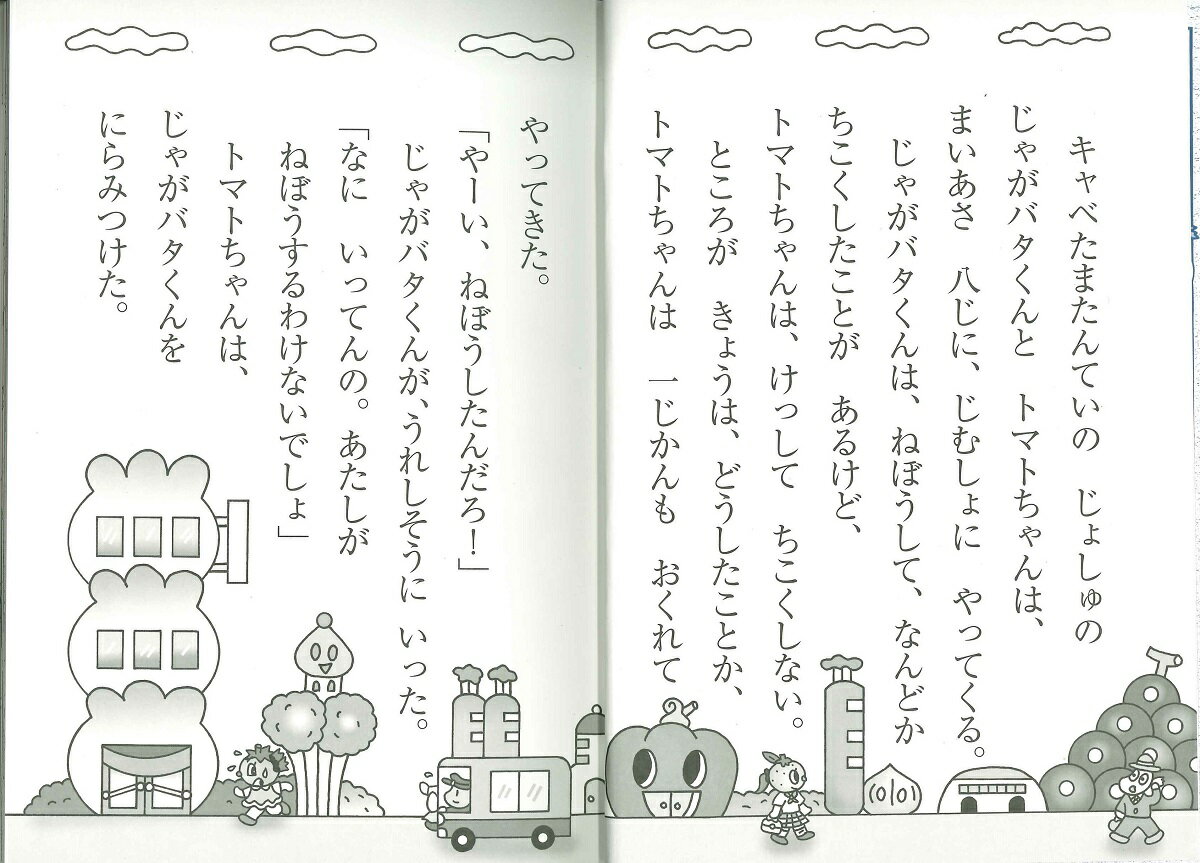 キャベたまたんていの　じょしゅの
じゃがバタくんと　トマトちゃんは、
まいあさ　八じに、じむしょに　やってくる。
じゃがバタくんは、ねぼうして、なんどか
ちこくしたことが　あるけど、
トマトちゃんは、けっして　ちこくしない。
ところが　きょうは、どうしたことか、
トマトちゃんは　一じかんも　おくれて
やってきた。
「やーい、ねぼうしたんだろ！」
じゃがバタくんが、うれしそうに　いった。
「なに　いってんの。あたしが
ねぼうするわけないでしょ」
トマトちゃんは、
じゃがバタくんを
にらみつけた。